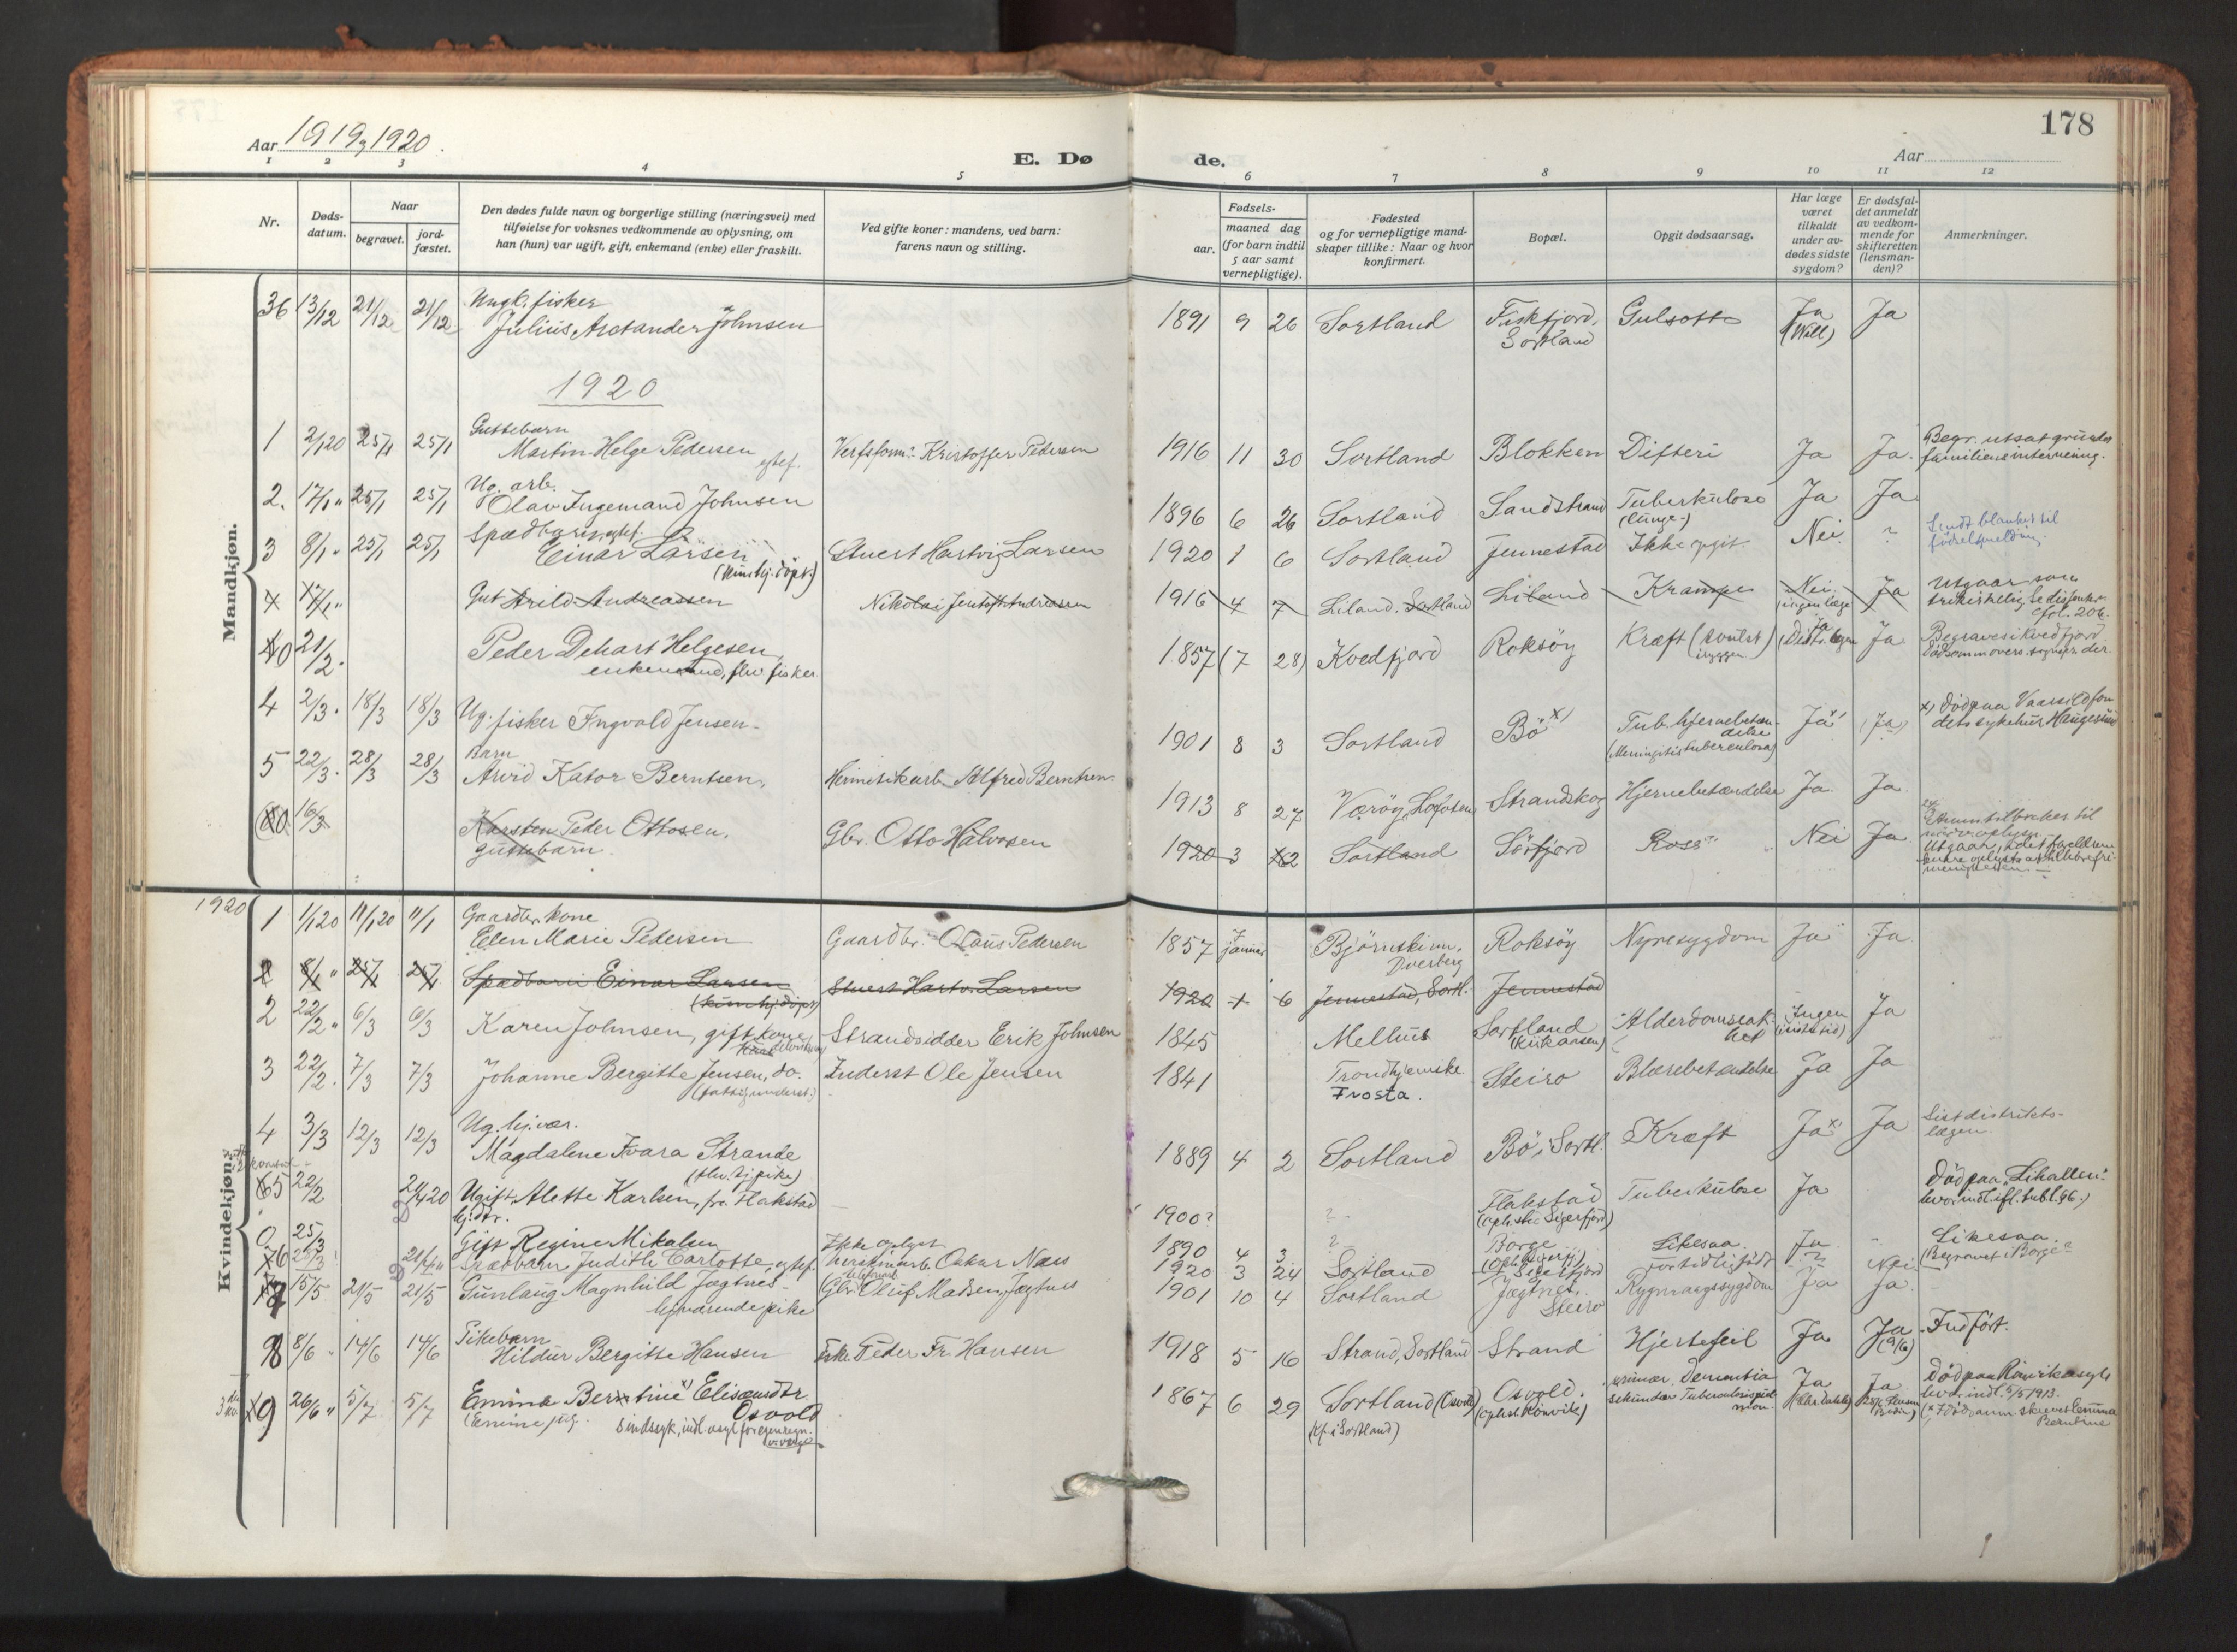 178
Aar 1919, 1920.
E. Dø de.
Aar
1 2 3 4 5 6 7 8 9 10 11 12
Nr.
Døds-
datum.
Naar
begravet.
jord-
fæstet.
Den dødes fulde navn og borgerlige stilling (næringsvei) med
tilføielse for voksnes vedkommende av oplysning, om
han (hun) var ugift, gift, enkemand (enke) eller fraskilt.
Ved gifte koner: mandens, ved barn:
farens navn og stilling.
Fødsels-
aar.
maaned dag
(for barn indtil
5 aar samt
vernepligtige).
Fødested
og for vernepligtige mand-
skaper tillike: Naar og hvor
konfirmert.
Bopæl.
Opgit dødsaarsag.
Har læge
været
tilkaldt
under av-
dødes sidste
sygdom?
Er dødsfal-
det anmeldt
av vedkom-
mende for
skifteretten
(lensman-
den)?
Anmerkninger.
Mandkjøn.
36 13/12 21/12 21/12 Ungk. fisker
Julius Arctander Johnsen
1891 9 26 Sortland Fiskfjord, Gulsott Ja Ja
Sortland (Wall)
1920
Guttebarn
1 2/1 20 25/1 25/1 Martin Helge Pedersen egtef. Verfsform. Kristoffer Pedersen
1916 11 30 Sortland Blokken Difteri Ja Ja. Begr. utsat grundet
familiens internering.
Ug. arb.
2. 17/1 " 25/1 25/1 Olav Ingemand Johnsen
1896 6 26 Sortland Sandstrand Tuberkulose Ja Ja
(lunge-)
Spædbarn, egtef.
3 8/1 " 25/1 25/1 Einar Larsen Stuert Hartvig Larsen
(hjemmedøpt.)
1920 1 6 Sortland Jennestad Ikke opgit Nei ? Sendt blanket til
fødselsmelding.
4 Gut Arild Andreassen Nikolai Jentoft Andreassen
1916 4 7 Liland. Sortland Liland Krampe Nei Ja Utgaar som
(ingen læge) frikirkelig. Se dissenter.
fol. 206.
0 21/2. Peder Dehart Helgesen,
enkemand, flv fisker
1857 (7 28) Kvedfjord Roksøy Kræft ( Ja Begraves i Kvedfjord
i ryggen
4 2/3. 18/3 18/3 Ug. fisker Ingvald Jensen.
1901 8 3 Sortland Bö x) Tub. hjernebetæn- Ja (Ja) x) Død paa Vaarsildfon
delse dets sykehus Haugesund
(Meningitis tuberculosa)
Barn
5 22/3. 28/3 28/3 Arvid Kator Berntsen, Hermetikarb. Alfred Berntsen.
1913 8 27 Værøy, Lofoten Strandskog Hjernebetændelse Ja. Ja.
0 16/3 Karsten Peder Ottosen, Gbr. Otto Halvorsen
guttebarn.
1920 3 2 Sortland Sörfjord Ross? Nei Ja
Kvindekjøn.
1920 1 1/1 20 11/1 20 11/1 Gaardbr. kone
Elen Marie Pedersen Gaardbr. Olaus Pedersen
1857 7 januar Björnskinn, Roksøy Nyresygdom Ja Ja
Dverberg
2 8/1 " 25/1 25/1 Spædbarn Einar Larsen Stuert Hartv. Larsen
1920 1 6 Jennestad, Sortl. Jennestad
2 22/2 " 6/3 6/3 Karen Johnsen, gift kone Strandsidder Erik Johnsen
1845 Melhus Sortland Alderdomssvak- Ingen Ja
het (i siste tid)
3 22/2. 7/3 7/3 Johanne Bergitte Jensen, do. Inderst Ole Jensen
(fattigunderst.)
1841 Trondhjemske Steiro Blærebetændelse Ja Ja
Frosta.
Ug. hj.vær.
4 3/3 12/3 12/3 Magdalene Ivara Strande
(flv. tj.pike)
1889 4 2 Sortland Bö i Sortl. Kræft Ja x) Ja Sist distrikts-
lægen
5 22/2 21/4 20 Ugift Alette Karlsen, fra Flakstad
hj.dtr.
1900? ? Flakstad Tuberkulose Ja Død paa "Lihallen"
(oph.sted Sigerfjord)
0 25/3 Gift Regine Mikalsen Ikke oplyst
1890 4 3 ? Borge Likesaa. Ja " Likesaa.
(Begravet i Borge?
6 Spædbarn Judith Carlotte, egtef. Oskar Næss
1920 3 24 Sortland Sigerfjord for tidlig født ? Nei
7 15/5 21/5 21/5 Gunlaug Magnhild Jægtnes Gbr. Oluf Madsen, Jægtnes
hj.værende pike
1901 10 4 Sortland Jægtnes, Rygmargssygdom Ja Ja.
Steiro
Pikebarn
8 8/6 " 14/6 14/6 Hildur Bergitte Hansen Fisk. Peder Fr. Hansen
1918 5 16 Strand, Sortland Strand Hjertefeil Ja Ja Indført.
(9/6)
9 26/6 " 5/7 5/7 Emma Berntine x) Elisæusdtr.
Osvold
sindssyk, indl. asyl for egen regn.
1867 6 29 Sortland (Osvold) Osvold. primær. Dementia Ja Ja Død paa Rönvik asyl
(Kf. i Sortland) (oph.st. Rönvik) hvor indl. 5/5 1913.
Berntine